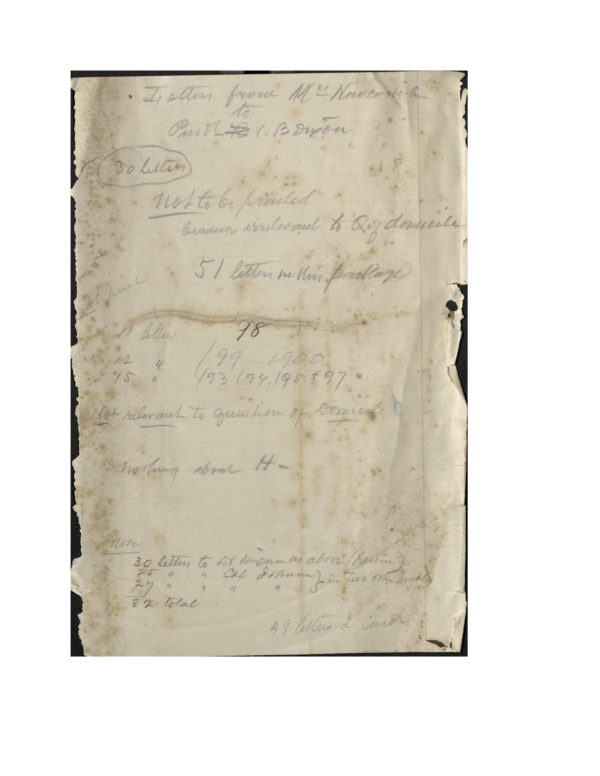 Letters from Mrs Newcomb
to
Prest B Dixon
30 letters
Not to be printed
because irrelevant to Q of domicile
51 letters in this package
letter 98
12 " '99 1900
15 " '93 '94, '95 + 97
Not relevant to question of Domicile
Nothing about H -
Note
30 letters to Dr Dixon as above (herein)
25 " " Col Johnson } in two other bundles
27 " " " "
82 total
49 letters 2 Cards